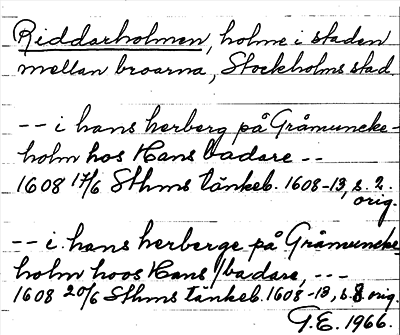 Riddarholmen, holme i staden
mellan broarna, Stockholms stad.
-- i hans herberg på Gråmuncke-
holm hos Hans badare --
1608 17/6 Sthms tänkeb. 1608-13, s. 2.
orig.
-- i hans herberge på Gråmuncke-
holm hoos Hans badare, ---
1608 20/6 Sthms tänkeb. 1608-13, s. 8 orig.
G.E. 1966.